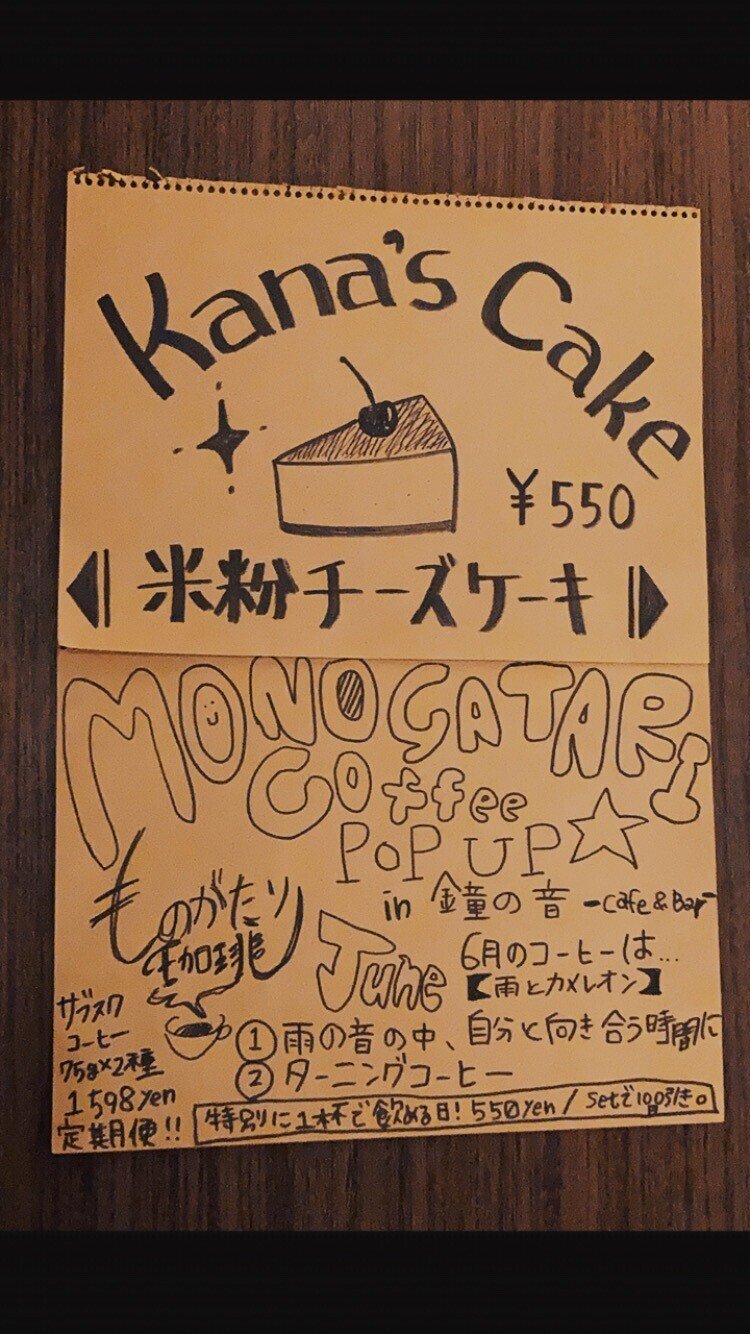 Kana's Cake
¥550
米粉チーズケーキ
MONOGATARI
Coffee
POP UP
in 鐘の音 -Cafe & Bar-
ものがたり
珈琲
June
6月のコーヒーは...
【雨とカメレオン】
① 雨の音の中、自分と向き合う時間に
② ターニングコーヒー
サブスク
コーヒー
75g×2種
1598yen
定期便!!
特別に1杯で飲める日! 550yen / setで100引き。